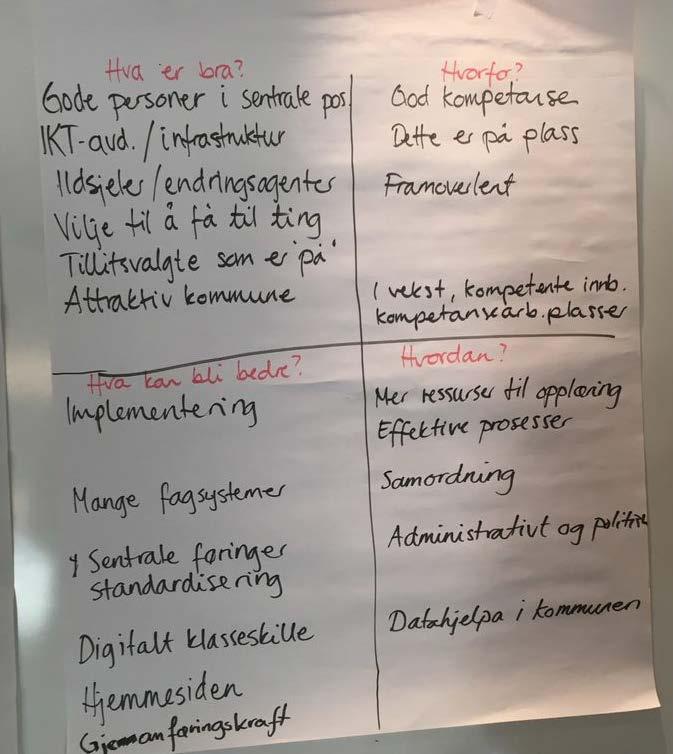 Hva er bra?
Gode personer i sentrale pos.
IKT-avd./infrastruktur
Ildsjeler/endringsagenter
Vilje til å få til ting
Tillitsvalgte som er "på"
Attraktiv kommune
Hvorfo?
God kompetanse
Dette er på plass
Framoverlent
I vekst, kompetente innb.
kompetansearb.plasser
Hva kan bli bedre?
Implementering
Mange fagsystemer
Sentrale føringer
standardisering
Digitalt klasseskille
Hjemmesiden
Gjennomføringskraft
Hvordan?
Mer ressurser til opplæring
Effektive prosesser
Samordning
Administrativt og politisk
Datahjelpa i kommunen